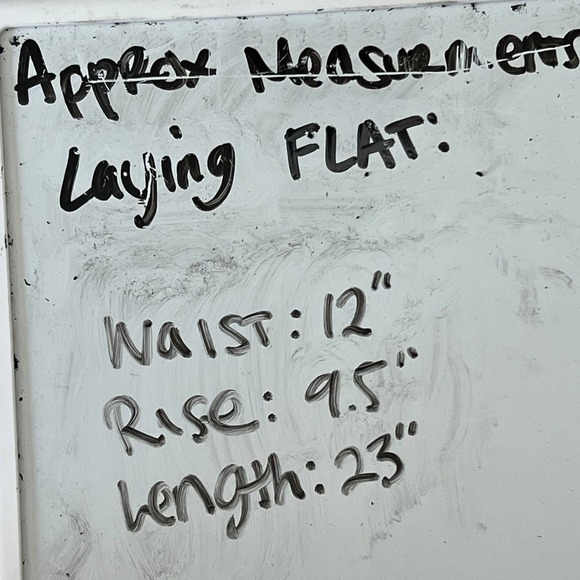 Approx Measurmens
Laying FLAT:
Waist: 12"
Rise: 9.5"
Length: 23"